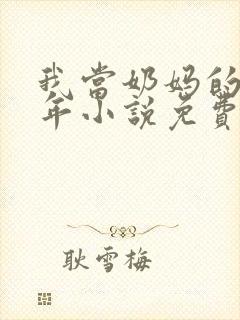 我当奶妈的
年小说免费
耿雪梅